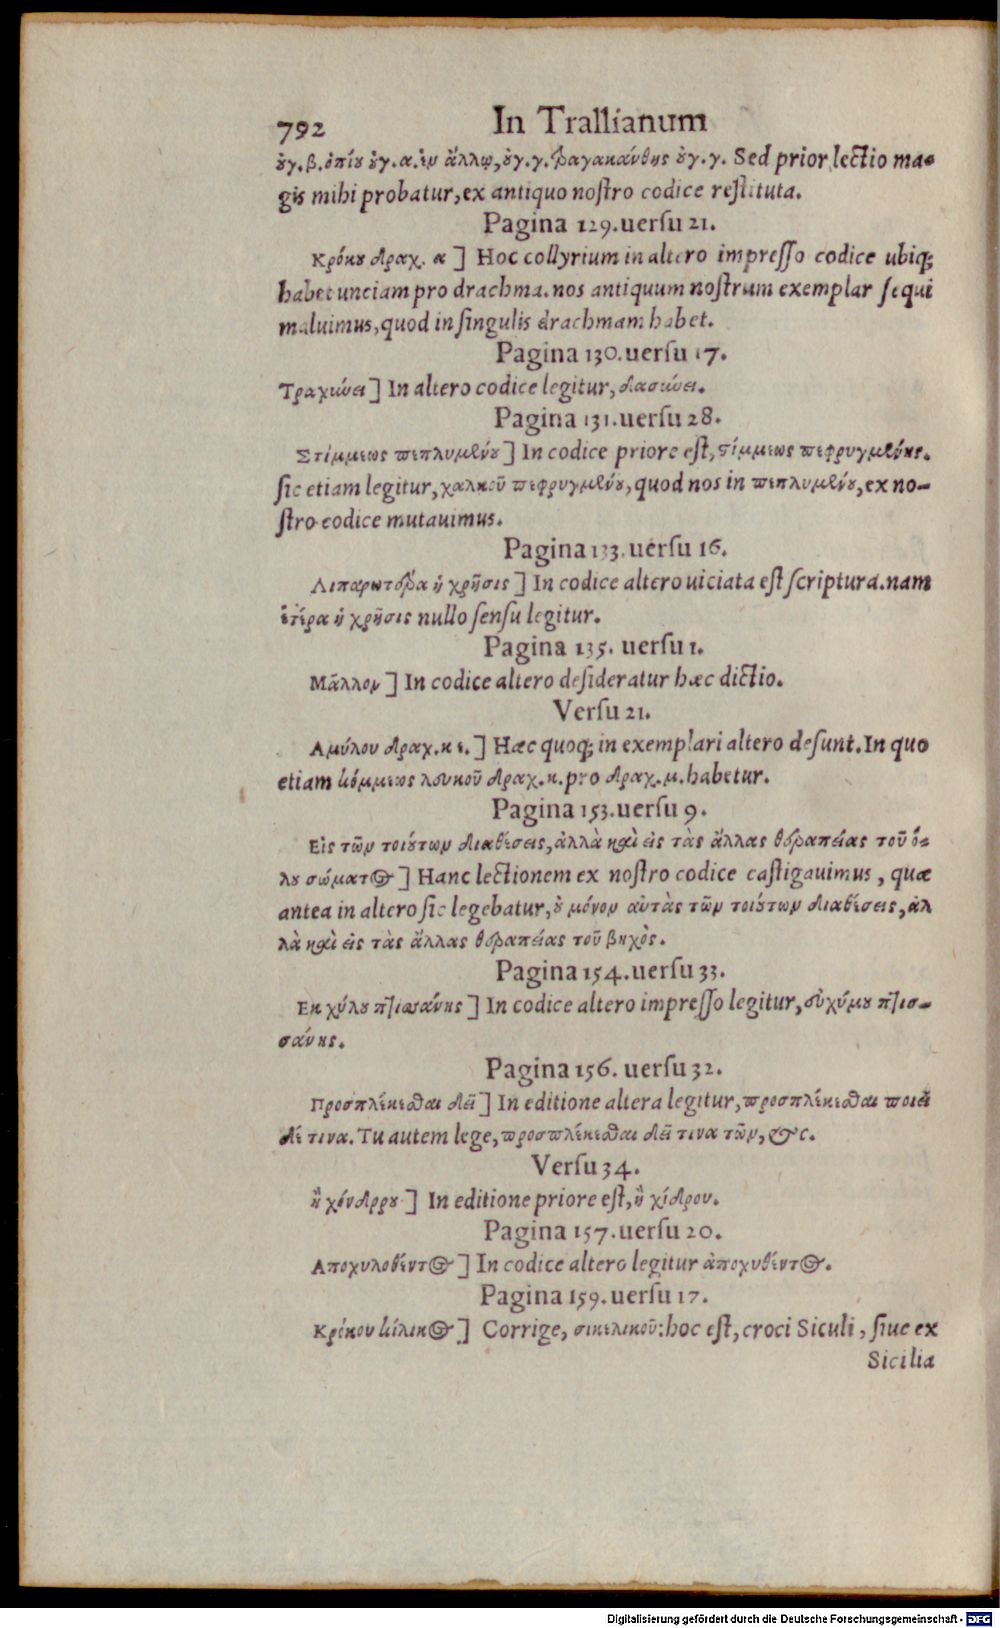 792 In Trallianum
ȣγ.β.ὀπίȣ ȣγ.α.ἐν ἄλλῳ, ȣγ.γ.τραγακάνθης ȣγ.γ. Sed prior lectio ma-
gis mihi probatur, ex antiquo nostro codice restituta.
Pagina 129. uersu 21.
Κρόκȣ δραχ. α ] Hoc collyrium in altero impresso codice ubiq;
habet unciam pro drachma. nos antiquum nostrum exemplar sequi
maluimus, quod in singulis drachmam habet.
Pagina 130. uersu 17.
Τραχύνει ] In altero codice legitur, δασύνει.
Pagina 131. uersu 28.
Στίμμεως πεπλυμένȣ ] In codice priore est, στίμμεως πεφρυγμένης.
sic etiam legitur, χαλκοῦ πεφρυγμένȣ, quod nos in πεπλυμένȣ, ex no-
stro codice mutauimus.
Pagina 133. uersu 16.
Λιπαρωτέρα ἡ χρῆσις ] In codice altero uiciata est scriptura. nam
ἑτέρα ἡ χρῆσις nullo sensu legitur.
Pagina 135. uersu 1.
Μᾶλλον ] In codice altero desideratur hæc dictio.
Versu 21.
Αμύλου δραχ. κ ε. ] Hæc quoq; in exemplari altero desunt. In quo
etiam κόμμεως λευκοῦ δραχ. κ. pro δραχ. μ. habetur.
Pagina 153. uersu 9.
Εἰς τῶν τοιȣ́των διαθέσεις, ἀλλὰ καὶ εἰς τὰς ἄλλας θεραπείας τοῦ ὅ-
λȣ σώματος ] Hanc lectionem ex nostro codice castigauimus, quæ
antea in altero sic legebatur, ȣ̓ μόνον αὐτὰς τῶν τοιȣ́των διαθέσεις, ἀλ
λὰ καὶ εἰς τὰς ἄλλας θεραπείας τοῦ βηχὸς.
Pagina 154. uersu 33.
Εκ χύλȣ πτισσάνης ] In codice altero impresso legitur, σὺ χύμȣ πτισ-
σάνης.
Pagina 156. uersu 32.
Προσπλέκεσθαι δεῖ ] In editione altera legitur, προσπλέκεσθαι ποιεῖ
δέ τινα. Tu autem lege, προσπλέκεσθαι δεῖ τινα τῶν, &c.
Versu 34.
ἢ χόνδρȣ ] In editione priore est, ἢ χίδρου.
Pagina 157. uersu 20.
Αποχυλωθέντος ] In codice altero legitur ἀποχυθέντος.
Pagina 159. uersu 17.
Κρόκου κίλικος ] Corrige, σικελικοῦ: hoc est, croci Siculi, siue ex
Sicilia
Digitalisierung gefördert durch die Deutsche Forschungsgemeinschaft - DFG